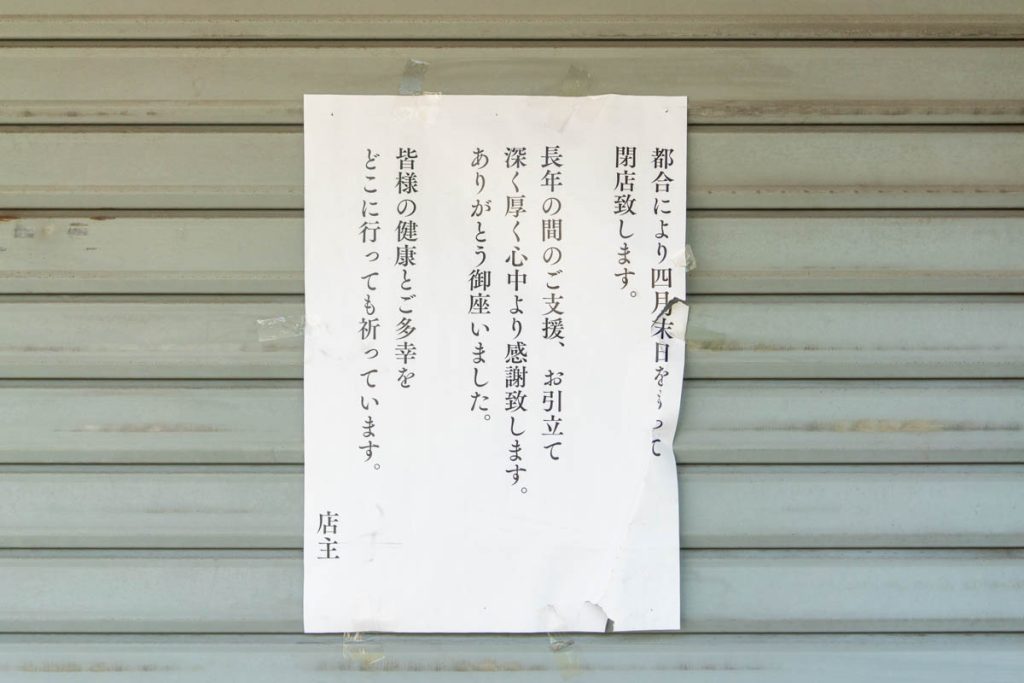 都合により四月末日をもって
閉店致します。
長年の間のご支援、お引立て
深く厚く心中より感謝致します。
ありがとう御座いました。
皆様の健康とご多幸を
どこに行っても祈っています。
店主